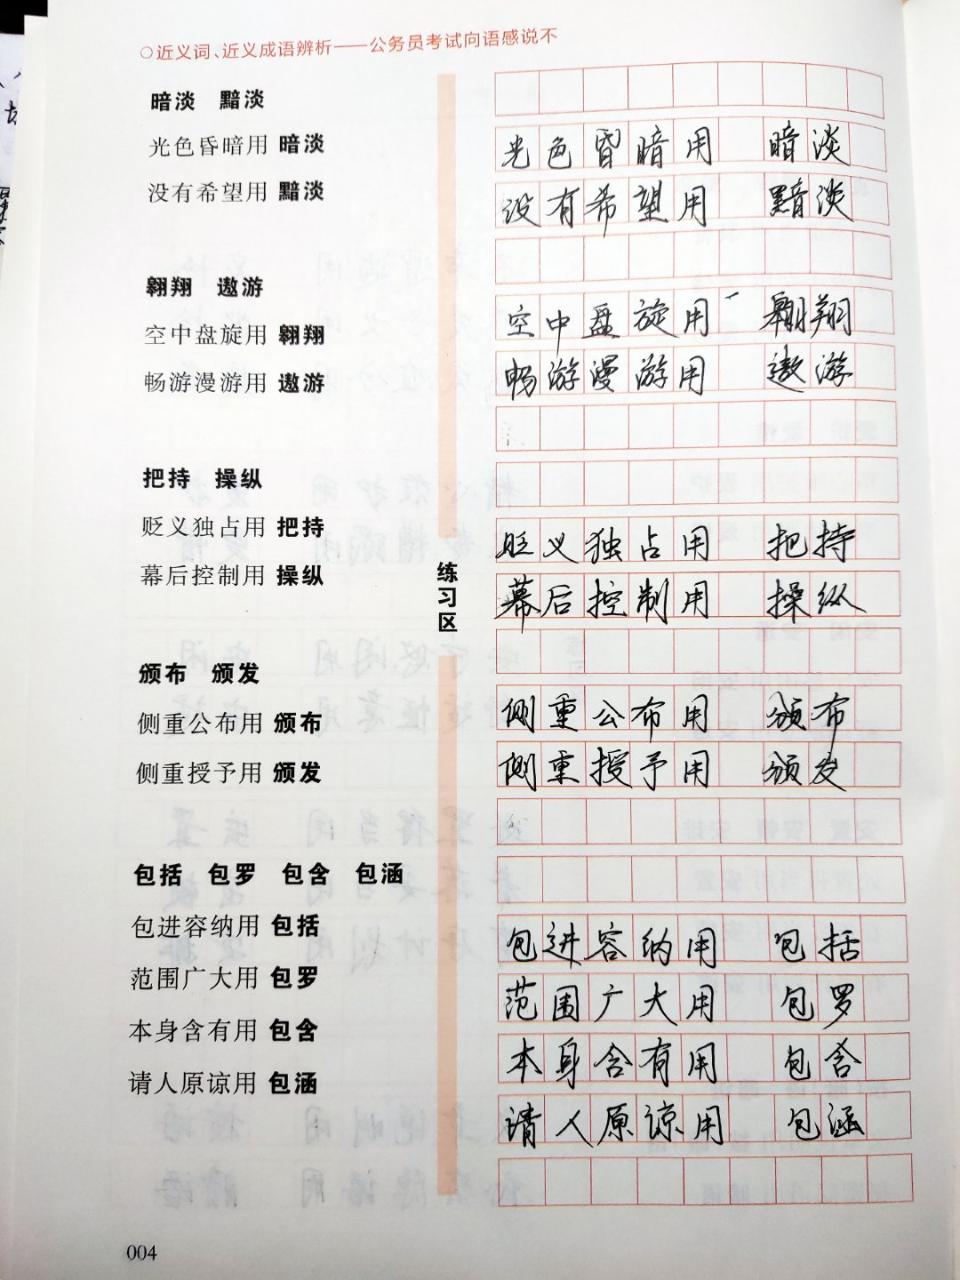 ○近义词、近义成语辨析——公务员考试向语感说不
暗淡 黯淡
光色昏暗用 暗淡
没有希望用 黯淡
翱翔 遨游
空中盘旋用 翱翔
畅游漫游用 遨游
把持 操纵
贬义独占用 把持
幕后控制用 操纵
颁布 颁发
侧重公布用 颁布
侧重授予用 颁发
包括 包罗 包含 包涵
包进容纳用 包括
范围广大用 包罗
本身含有用 包含
请人原谅用 包涵
练习区
光色昏暗用 暗淡
没有希望用 黯淡
空中盘旋用 翱翔
畅游漫游用 遨游
贬义独占用 把持
幕后控制用 操纵
侧重公布用 颁布
侧重授予用 颁发
包进容纳用 包括
范围广大用 包罗
本身含有用 包含
请人原谅用 包涵
004